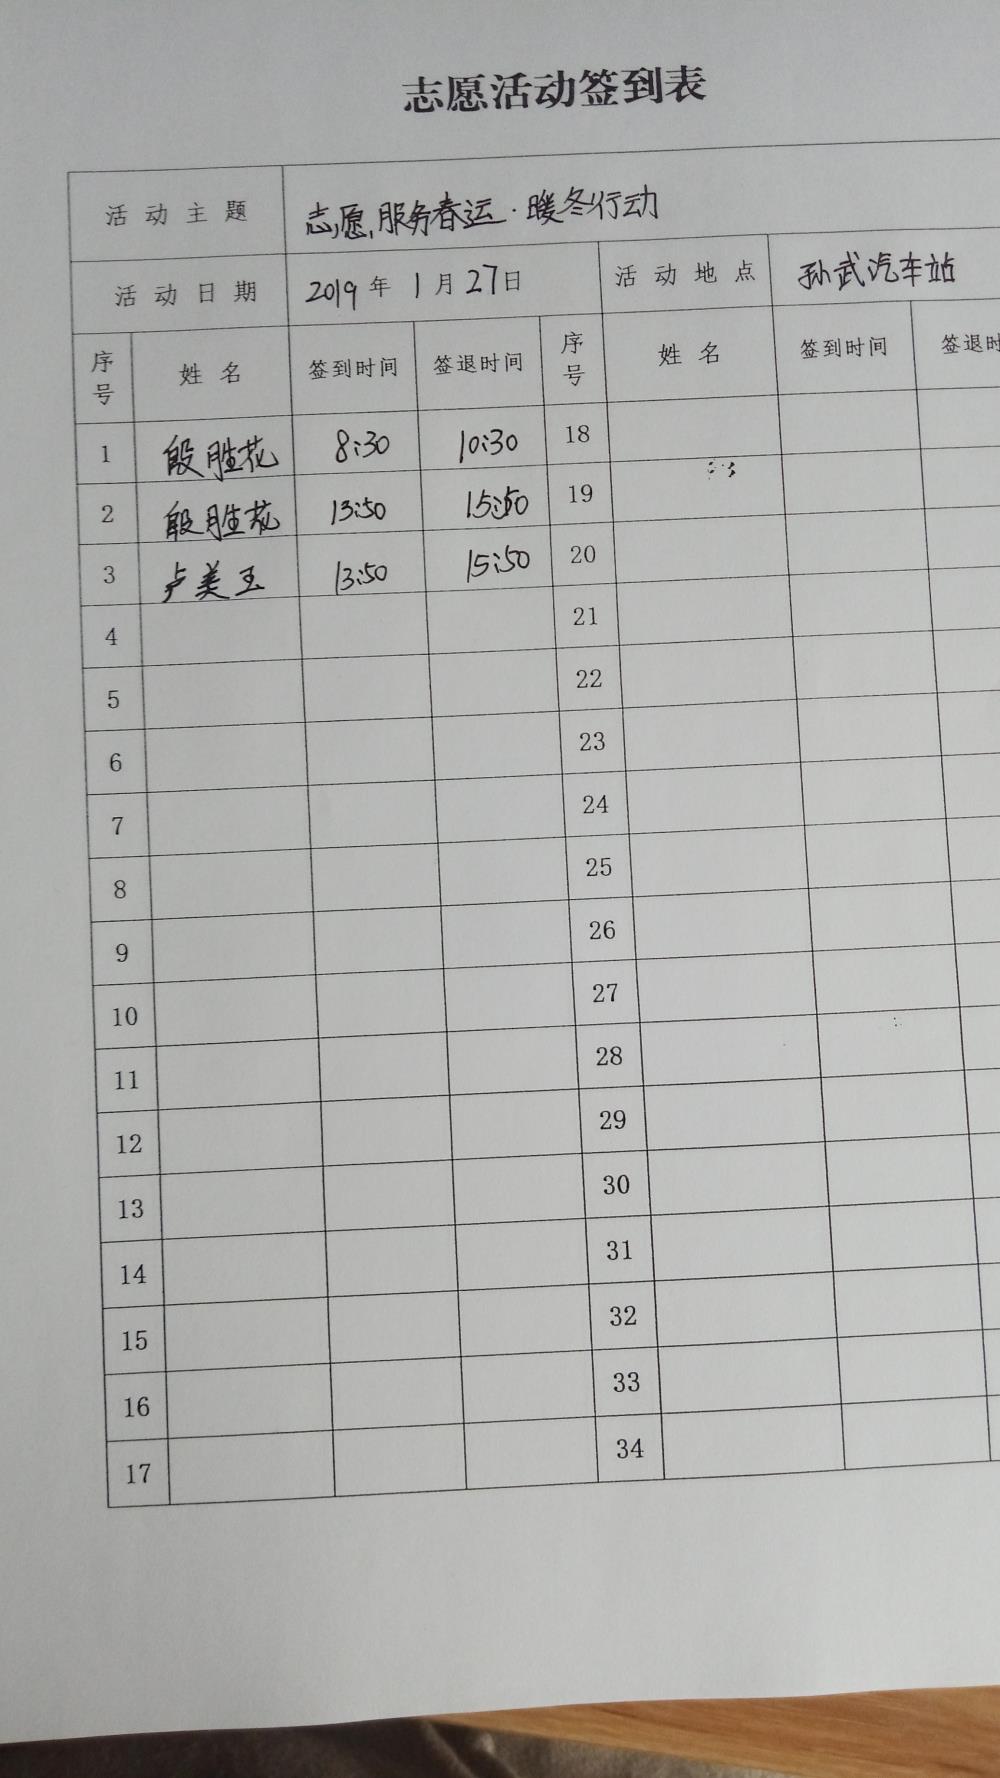 志愿活动签到表
活动主题 志愿服务春运·暖冬行动
活动日期 2019年1月27日 活动地点 孙武汽车站
序号 姓名 签到时间 签退时间 序号 姓名 签到时间 签退时
1 段胜花 8:30 10:30 18
2 段胜花 13:50 15:50 19
3 卢美玉 13:50 15:50 20
4 21
5 22
6 23
7 24
8 25
9 26
10 27
11 28
12 29
13 30
14 31
15 32
16 33
17 34